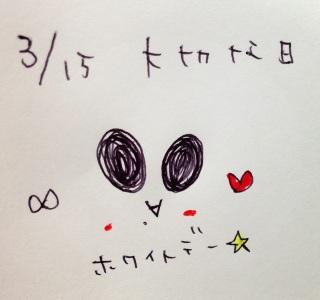 3/15 大切な日
∞
ホワイトデー